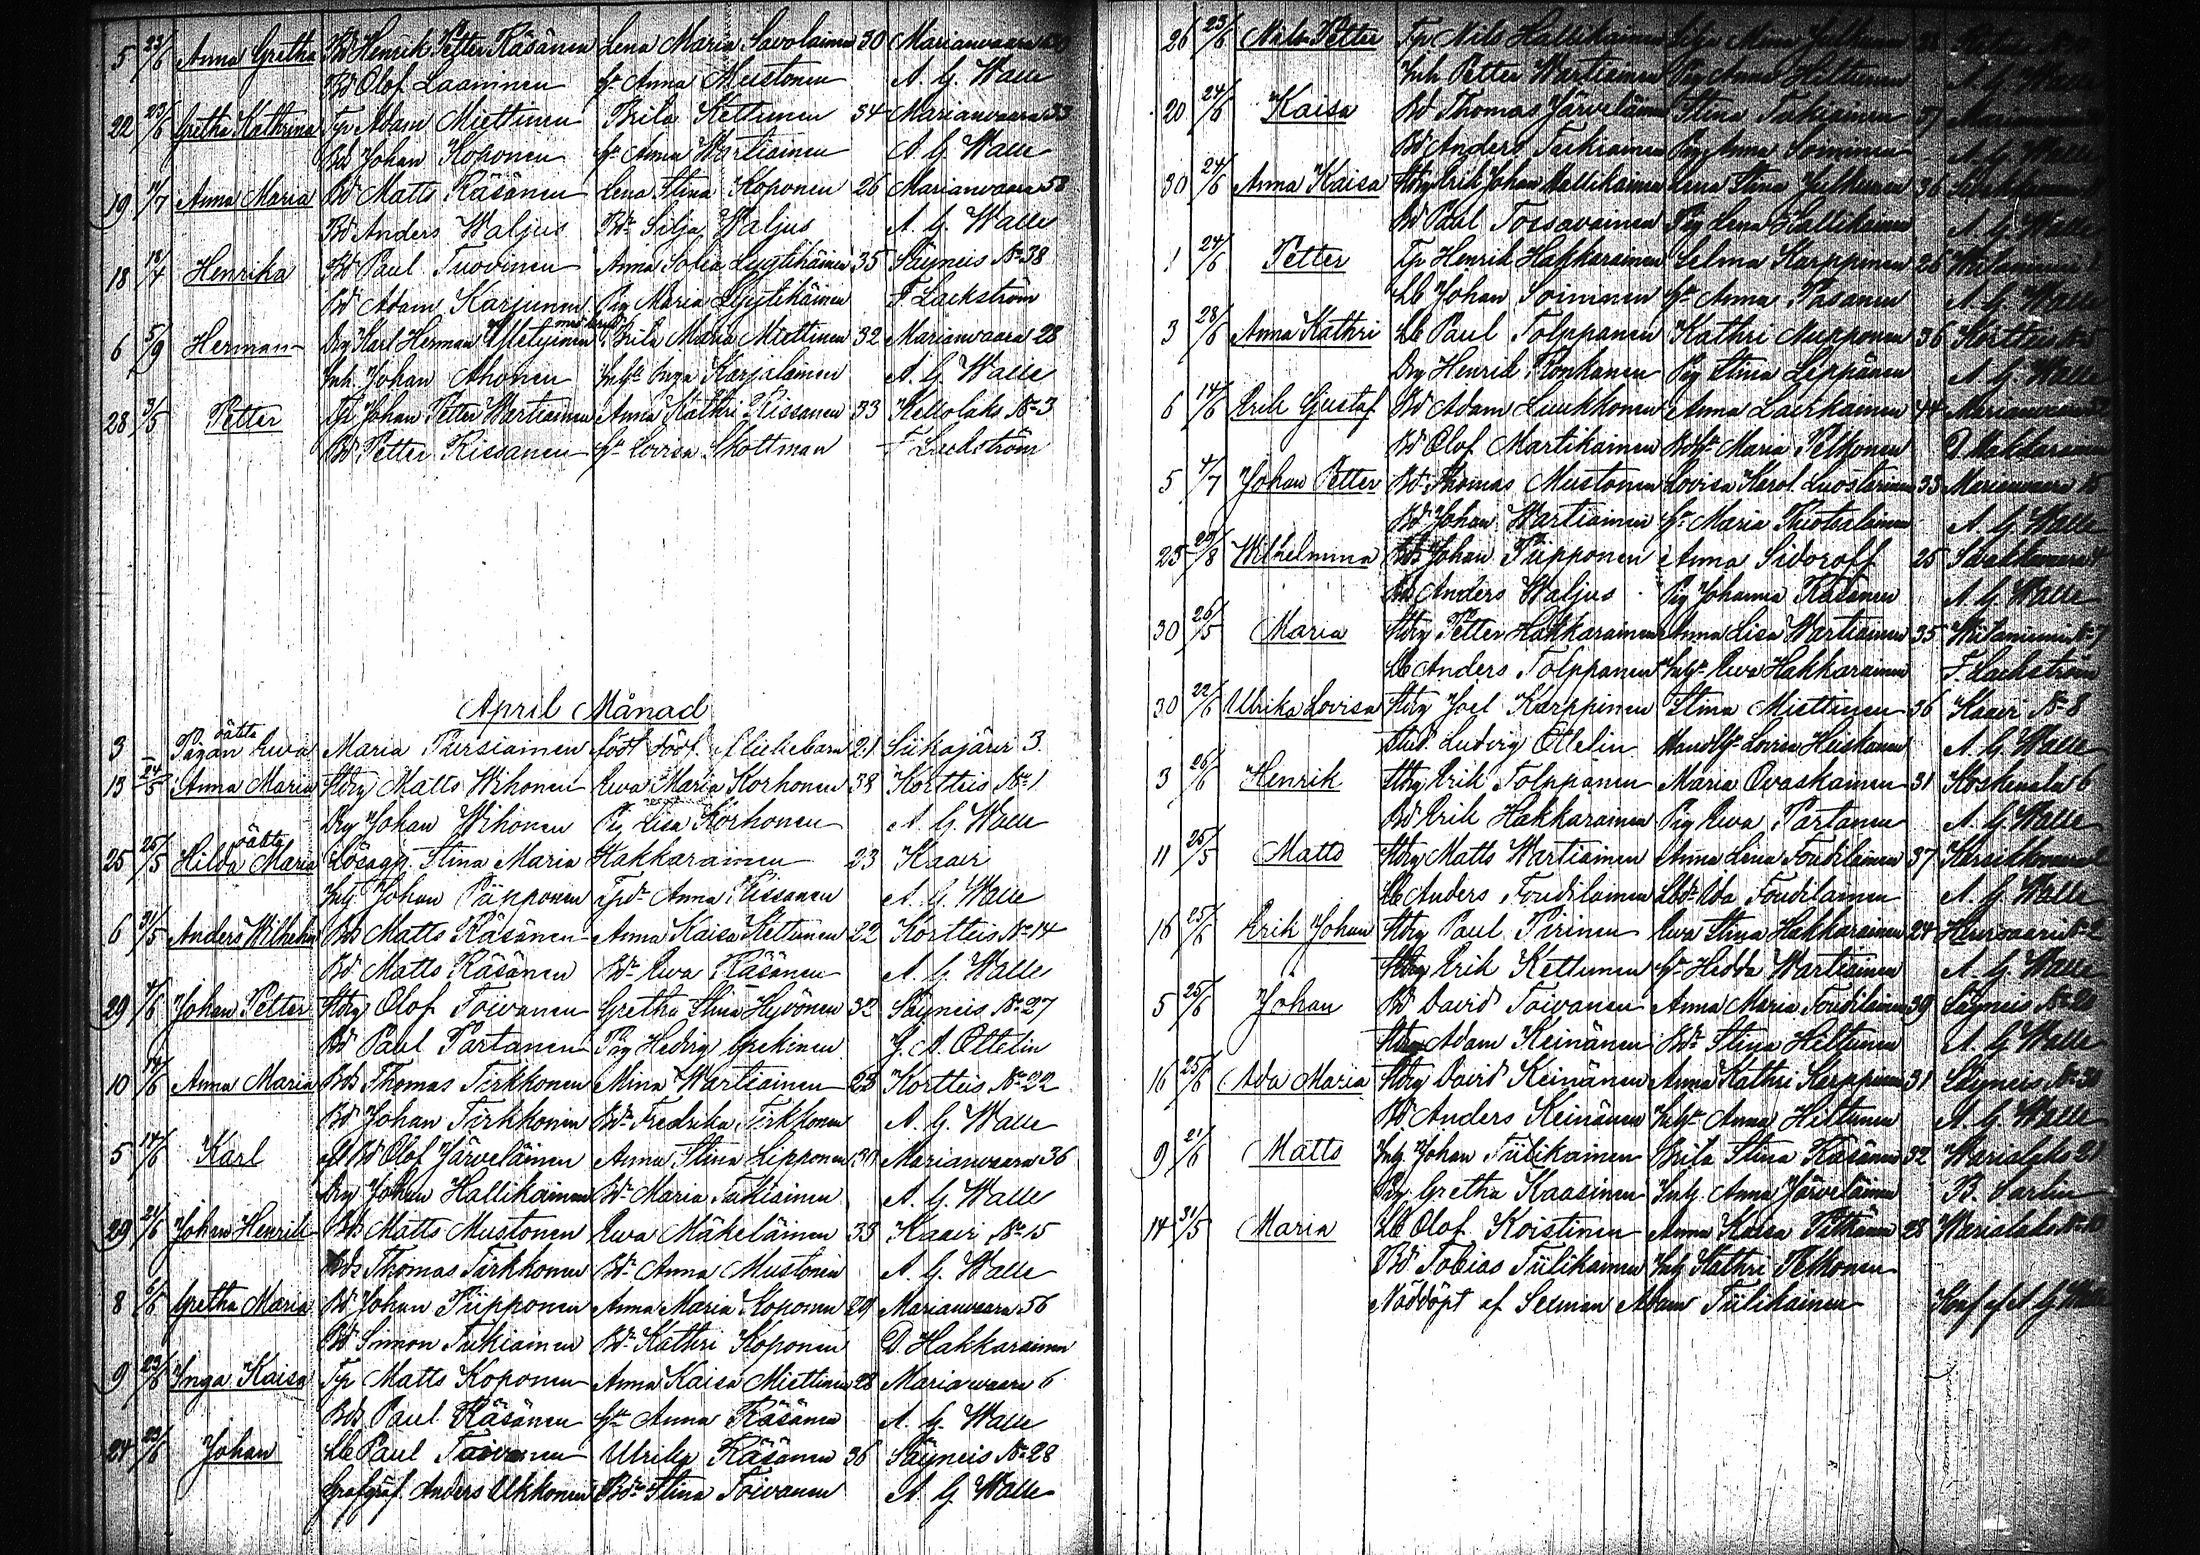 5 23/6 Anna Gretha Bd Henrik Petter Räsänen Lena Maria Savolainen 30 Marianvaara
Bd Olof Laaninen Hr Anna Mustonen A. G. Walle
22 23/6 Gretha Kathrina Tp Adam Miettinen Brita Kettunen 34 Marianvaara 33
Bds Johan Koponen Hr Anna Wartiainen A. G. Walle
19 11/7 Anna Maria Bd Matts Räsänen Lena Stina Koponen 26 Marianvaara 58
Bd Anders Waljus Bdr Silja Waljus A. G. Walle
18 18/4 Henrika Bd Paul Tuovinen Anna Sofia Lyytikäinen 35 Säyneis No 38
Bd Adam Karjunen Pig Maria Lyytikäinen F. Lackström
6 5/9 Herman Drg Karl Herman Brita Maria Miettinen 32 Marianvaara 28
Inh. Johan Ahonen Inhr Inga Karjalainen A. G. Walle
28 3/5 Petter Tp Johan Petter Wartiainen Anna Kathri Rissanen 33 Kellolaks No 3
Bd Petter Rissanen Hr Lovisa Skottman F. Lackström
April Månad
oäkta
3 Pigan Ewa Maria Piirsiainen 21 Siikajärvi 3.
13 24/5 Anna Maria Stdrg Matts Wihonen Ewa Maria Korhonen 38 Kortteis No 1
Drg Johan Wihonen Pig Lisa Korhonen A. G. Walle
oäkta
25 25/5 Hilda Maria Lösagn. Stina Maria Hakkarainen 23 Kaavi
Inhs Johan Päpponen Tpdr Anna Rissanen A. G. Walle
6 31/5 Anders Wilhelm Bds Matts Räsänen Anna Kaisa Kettunen 22 Kortteis No 14
Bd Matts Räsänen Bdr Ewa Räsänen A. G. Walle
29 Johan Petter Stdrg Olof Toivanen Gretha Stina Hyvönen 32 Säyneis No 27
Bd Paul Partanen Pig Hedvig J. A. Ottelin
10 14/6 Anna Maria Bds Thomas Tirkkonen Mina Wartiainen 28 Kortteis No 22
Bd Johan Tirkkonen Bdr Fredrika Tirkkonen A. G. Walle
5 14/6 Karl Bd Olof Järveläinen Anna Stina Lipponen 30 Marianvaara 36
Drg Johan Hallikainen Bdr Maria Takiainen A. G. Walle
29 24/6 Johan Henrik Bds Matts Mustonen Ewa Mäkeläinen 33 Kaavi No 15
Bds Thomas Tirkkonen Bdr Anna Mustonen A. G. Walle
8 Gretha Maria Bd Johan Piipponen Anna Maria Koponen 29 Marianvaara 56
Bd Simon Tukiainen Bdr Kathri Koponen D. Hakkarainen
9 23/6 Inga Kaisa Tp Matts Koponen Anna Kaisa Miettinen 28 Marianvaara 6
Bds Paul Räsänen Hr Anna Räsänen A. G. Walle
24 23/6 Johan Lb Paul Toivanen Ulrika Räsänen 36 Säyneis No 28
Anders Ukkonen Bdr Stina Toivanen A. G. Walle
26 23/6 Nils Petter Tp Nils Hallikainen
Inh Petter Wartiainen Pig Anna Hiltunen A. G. Walle
20 24/6 Kaisa Bd Thomas Järveläinen Stina Tukiainen
Bd Anders Tukiainen Pig Anna Soininen A. G. Walle
30 24/6 Anna Kaisa Stdrg Erik Johan Hallikainen Lena Stina Julkunen 36
Bd Paul Tossavainen Pig Lena Hallikainen A. G. Walle
1 24/6 Petter Tp Henrik Hakkarainen Selma Karppinen 26
Lb Johan Soininen Hr Anna Pasanen A. G. Walle
3 28/6 Anna Kathri Lb Paul Tolppanen Kathri Nupponen 36 Kortteis
Drg Henrik Ronkanen Pig Stina Leppänen A. G. Walle
6 14/6 Erik Gustaf Bd Adam Luukkonen Anna Laukkanen 44 Marianvaara
Bd Olof Martikainen Bdhr Maria Pelkonen D. Hakkarainen
5 4/7 Johan Petter Bd Thomas Mustonen Lovisa Karol. Luostarinen 33 Marianvaara
Bd Johan Wartiainen Hr Maria Ruotsalainen A. G. Walle
23 29/8 Wilhelmina Bds Johan Piipponen Anna Sidoroff 25
Bd Anders Waljus Pig Johanna Räsänen A. G. Walle
30 26/5 Maria Stdrg Petter Hakkarainen Anna Lisa Wartiainen 35 Wiitaniemi No 7
Lb Anders Tolppanen Inhr Ewa Hakkarainen F. Lackström
30 22/6 Ulrika Lovisa Stdrg Joel Karppinen Stina Miettinen 36 Kaavi No 8
Stud. Ludvig Ottelin Lovisa Heiskanen A. G. Walle
3 26/6 Henrik Stdrg Erik Tolppanen Maria Ovaskainen 31 Koskenala 6
Bd Erik Hakkarainen Pig Ewa Partanen A. G. Walle
11 25/5 Matts Stdrg Matts Wartiainen Anna Lena Toudilainen 37
Lb Anders Toudilainen Lbdr Ida Toudilainen A. G. Walle
16 25/6 Erik Johan Stdrg Paul Pirinen Ewa Stina Hakkarainen 24 No 2
Stdrg Erik Kettunen Hr Hedda Wartiainen A. G. Walle
5 25/6 Johan Bd David Toivanen Anna Maria Toudilainen 39 Säyneis No 20
Stdrg Adam Keinänen Bdr Stina Hiltunen A. G. Walle
16 25/6 Ada Maria Stdrg David Keinänen Anna Kathri Karppinen 31 Säyneis No 30
Bd Anders Keinänen Inhr Anna Hiltunen A. G. Walle
9 21/6 Matts Inhs Johan Tiilikainen Brita Stina Räsänen 32 Warislaks 21
Pig Gretha Kaasinen Inhs Anna Järveläinen B. Sarlin
14 31/5 Maria Lb Olof Koistinen Anna Kaisa Pitkänen 28 Warislaks
Bd Tobias Tiilikainen Inhs Kathri Pelkonen
Nöddöpt af Sexman Adam Tiilikainen Konf af A G Walle